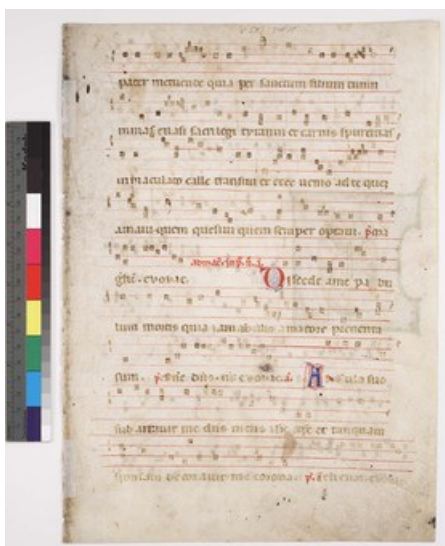 pater metuende quia per sanctum filium tuum
minas euasi sacrilegi tyranni et carnis spurcitias
inmaculato calle transiui et ecce uenio ad te quem
amaui quem quesiui quem semper optaui.
euouae. Discede a me pa bu
lum mortis quia iam ab alio amatore preuenta
sum. euouae. A nulo suo
sub arrauit me dns meus ihc et tanquam
sponsam decorauit me corona.